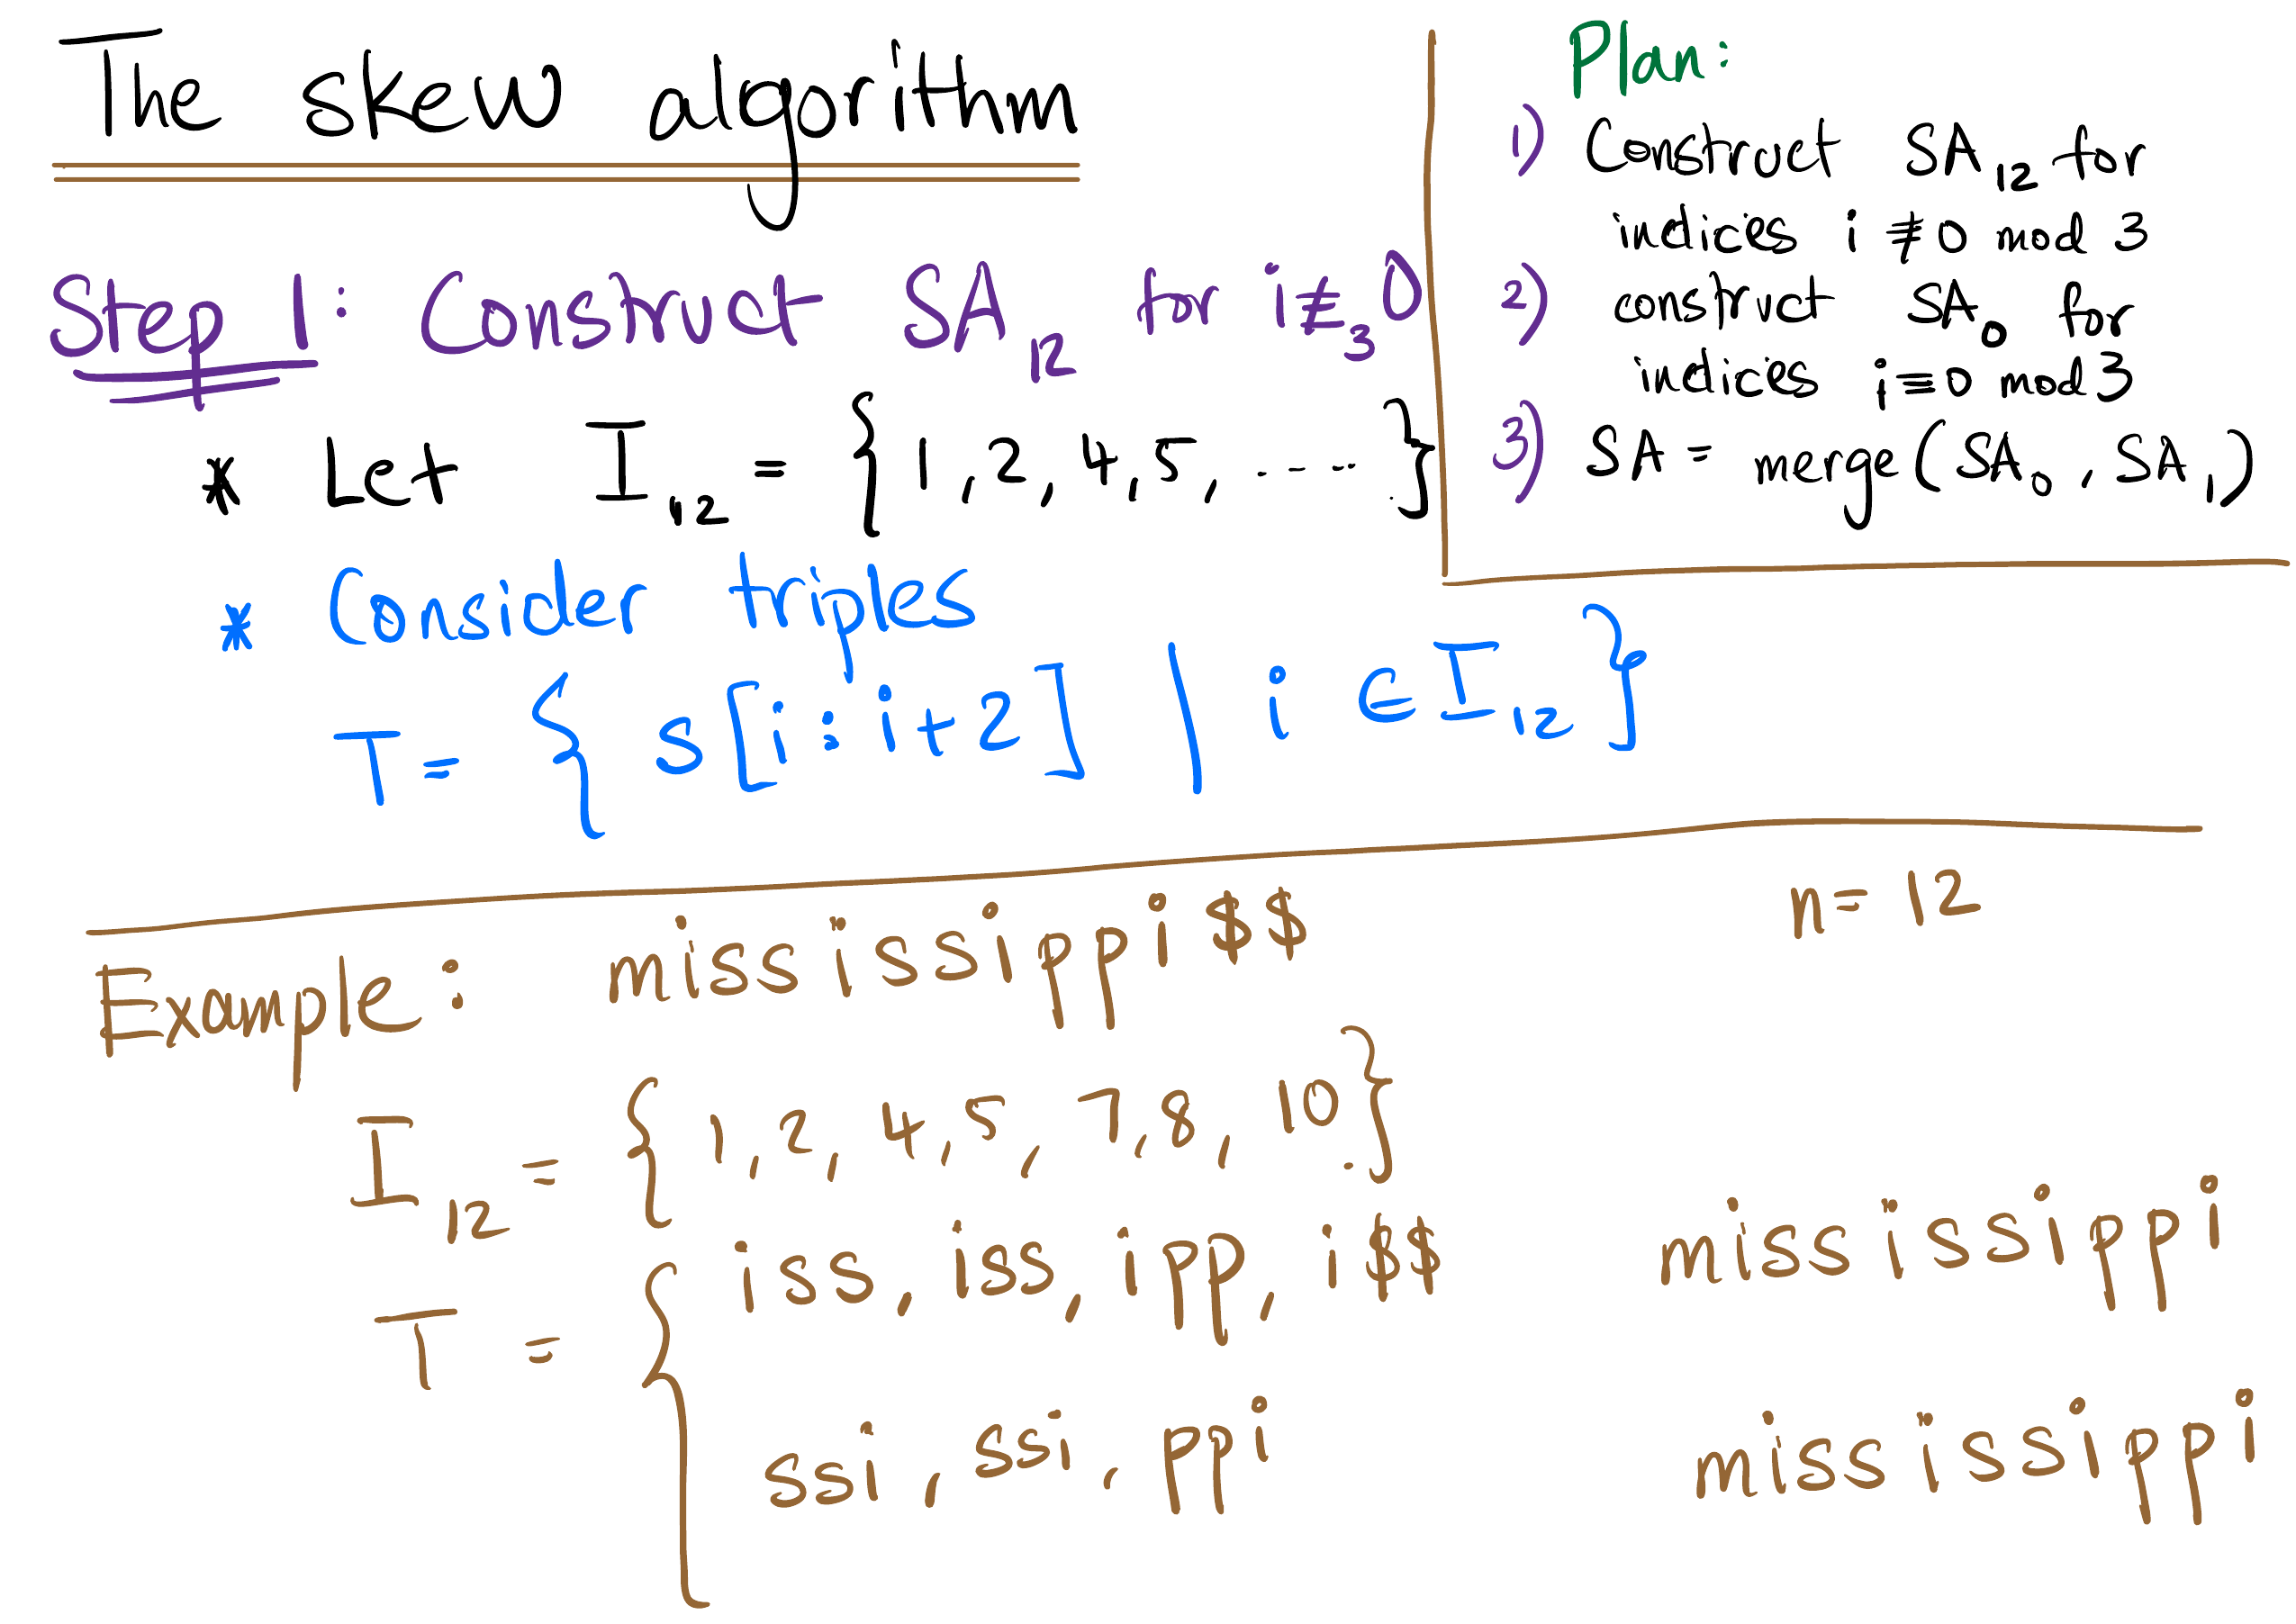 The skew algorithm
Plan:
1) Construct SA₁₂ for
indices i ≢ 0 mod 3
2) construct SA₀ for
indices i ≡ 0 mod 3
3) SA = merge(SA₀, SA₁)
Step 1: Construct SA₁₂ for i ≢₃ 0
* Let I₁₂ = {1, 2, 4, 5, .....}
* Consider triples
T = { s[i : i+2] | i ∈ I₁₂ }
n = 12
Example: mississippi$$
I₁₂ = {1, 2, 4, 5, 7, 8, 10}
T = { iss, iss, ipp, i$$
mississippi
ssi, ssi, ppi
mississippi